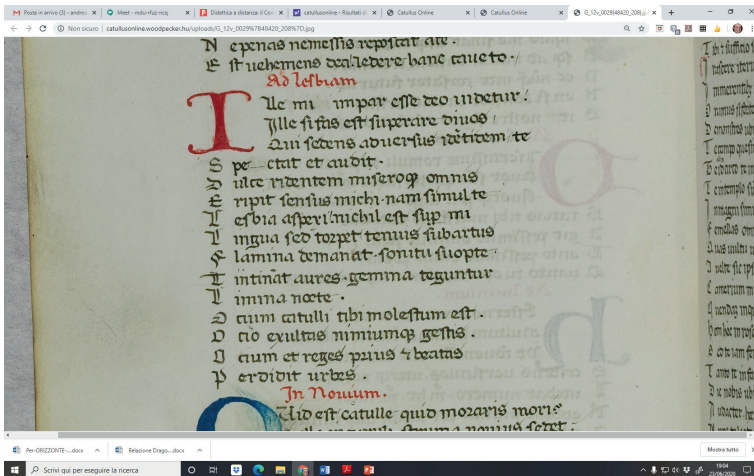 Posta in arrivo (3) - andrea
Meet - mdu-rfuz-ncsj
Didattica a distanza: il Con
catullusonline - Risultati di
Catullus Online
Catullus Online
G_12v_0029{48420_208}.jpg
Non sicuro | catullusonline.woodpecker.hu/uploads/G_12v_0029%7B48420_208%7D.jpg
N e penas nemessis reposcat ate .
E st uehemens dea ledere hanc caueto .
Ad lesbiam
I lle mi impar esse deo uidetur .
Ille si fas est superare diuos
Qui sedens aduersus idẽtidem te
S pe ctat et audit .
D ulce ridentem misero qȝ omnis
E ripit sensus michi . nam simul te
L esbia aspexi . nichil est sup mi
L ingua sed torpet tenuis sub artus
F lamina demanat . sonitu suopte .
T intinãt aures . gemina teguntur
L imina nocte .
O cium catulli tibi molestum est .
O cio exultas nimiumqȝ gestis .
O cium et reges prius ⁊ beatas
P erdidit urbes .
In Nouium .
Quid est catulle quid moraris mori
Per-ORIZZONTE-....docx
Relazione Drago....docx
Mostra tutto
Scrivi qui per eseguire la ricerca
19:04
23/06/2020